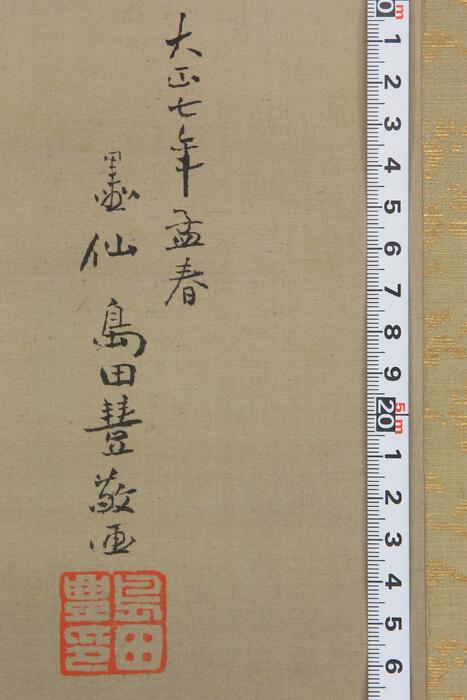 大正七年孟春
墨仙 島田豊敬画
島田豊
0 1 2 3 4 5 6 7 8 9 20 1 2 3 4 5 6
m
5m